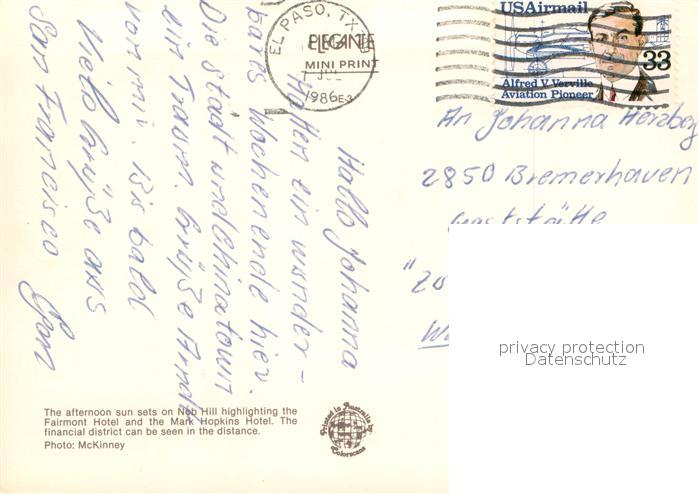 EL PASO, TX
ELEGANTE
MINI PRINT
JUL
1986
USAirmail
33
Alfred V. Verville
Aviation Pioneer
Hallo Johanna
Hatten ein wunder-
bares Wochenende hier.
Die Stadt und Chinatown
ein Traum. Grüße Arndt
von mir. Bis bald
Viele Grüße aus
San Francisco
An Johanna Herzberg
2850 Bremerhaven
Gaststätte
privacy protection
Datenschutz
The afternoon sun sets on Nob Hill highlighting the
Fairmont Hotel and the Mark Hopkins Hotel. The
financial district can be seen in the distance.
Photo: McKinney
Printed in Australia by
Colorscans